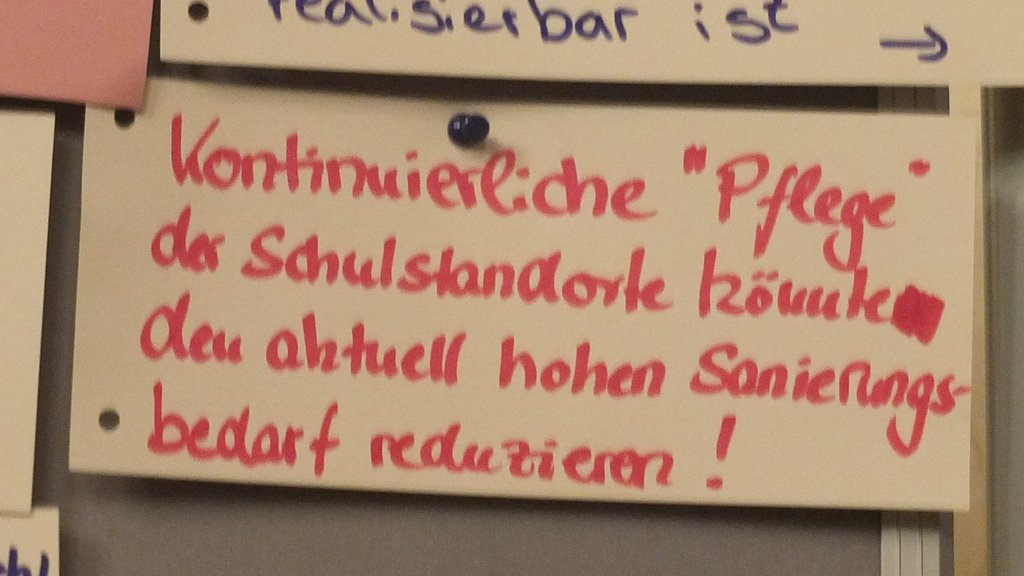 realisierbar ist →
Kontinuierliche "Pflege"
der Schulstandorte könnte
den aktuell hohen Sanierungs-
bedarf reduzieren!